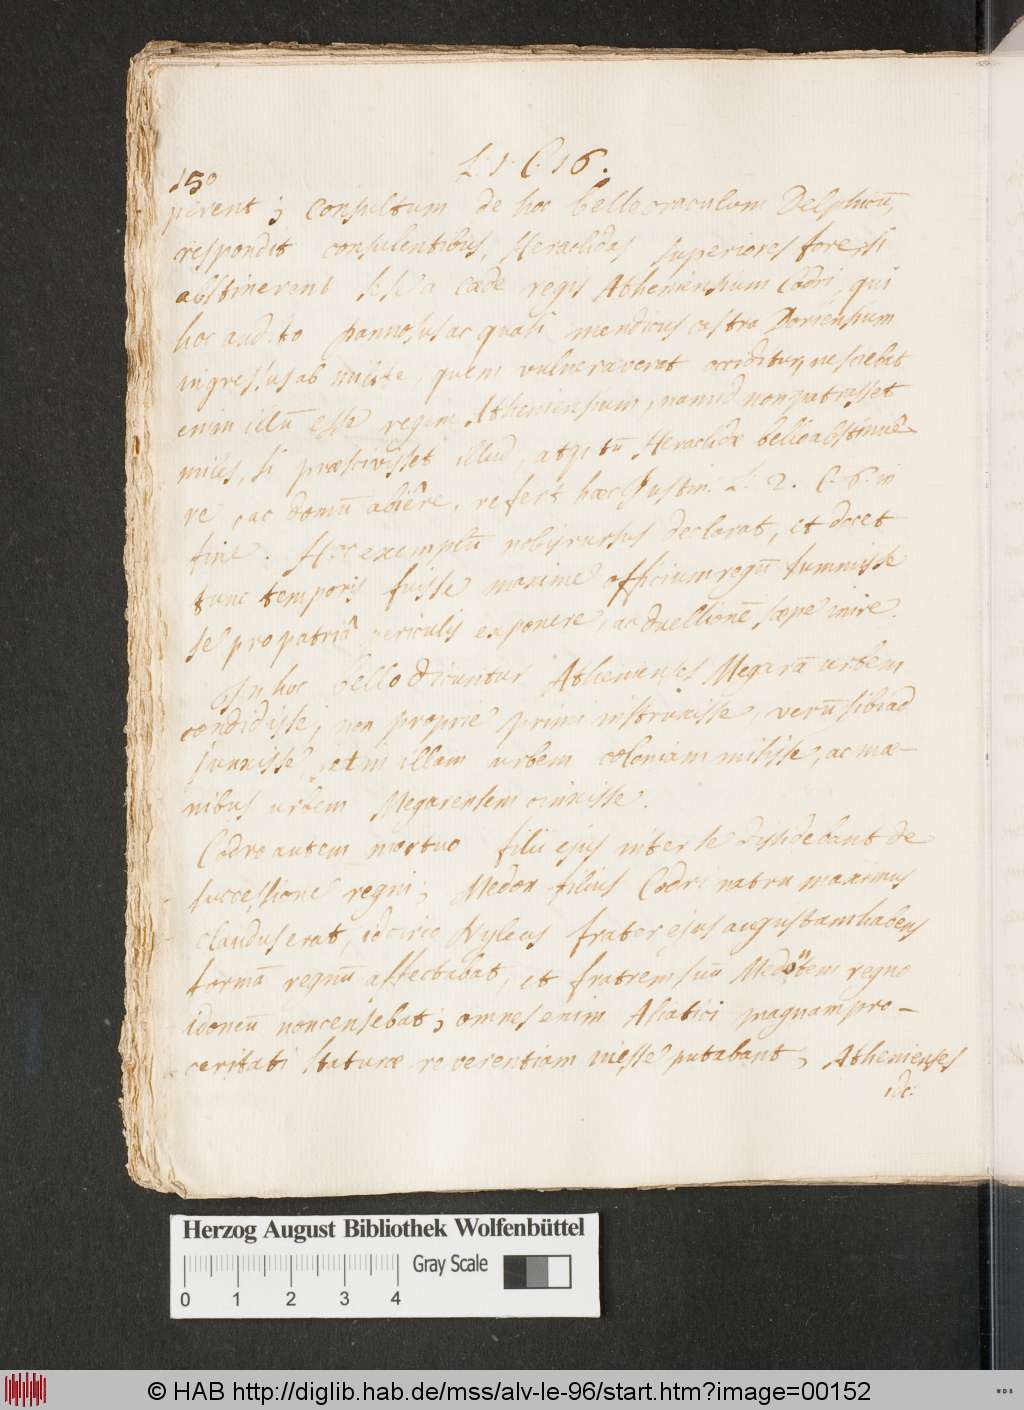 L. 1. C. 16.
150
perent; consultum de hoc bello oraculum Delphicū,
respondit consulentibus, Heraclidas superiores fore, si
abstinerent sese a cæde regis Atheniensium Codri, qui
hoc audito pannosus ac quasi mendicus castra Doriensium
ingressus ab milite, quem vulneraverat occiditur, nesciebat
enim illū esse regem Atheniensium, nam id non patrasset
miles, si præscivisset illud, atq; tū Heraclidæ bello abstinuē-
re, ac domū abiêre, refert hæc Justin. L. 2. C. 6. in
fine. Hoc exemplū nobis rursus declarat, et docet
tunc temporis fuisse maxime officium regū summisse
se pro patriâ periculis exponere, ac duellionē sæpe inire.
In hoc bello dicuntur Athenienses Megarā urbem
condidisse; non proprie primi instruxisse, verū sibi ad
junxisse, et in illam urbem coloniam misisse, ac mæ-
nibus urbem Megarensem cinxisse.
Codro autem mortuo filii ejus inter se dissidebant de
successione regni; Medon filius Codri natu maximus
claudus erat, idcirco Nyleus frater ejus augustam habens
formā regnū affectabat, et fratrem suū Medontem regno
idoneū non censebat; omnes enim Asiatici magnam pro-
ceritati staturæ reverentiam inesse putabant, Athenienses
idc:
Herzog August Bibliothek Wolfenbüttel
Gray Scale
0 1 2 3 4
© HAB http://diglib.hab.de/mss/alv-le-96/start.htm?image=00152